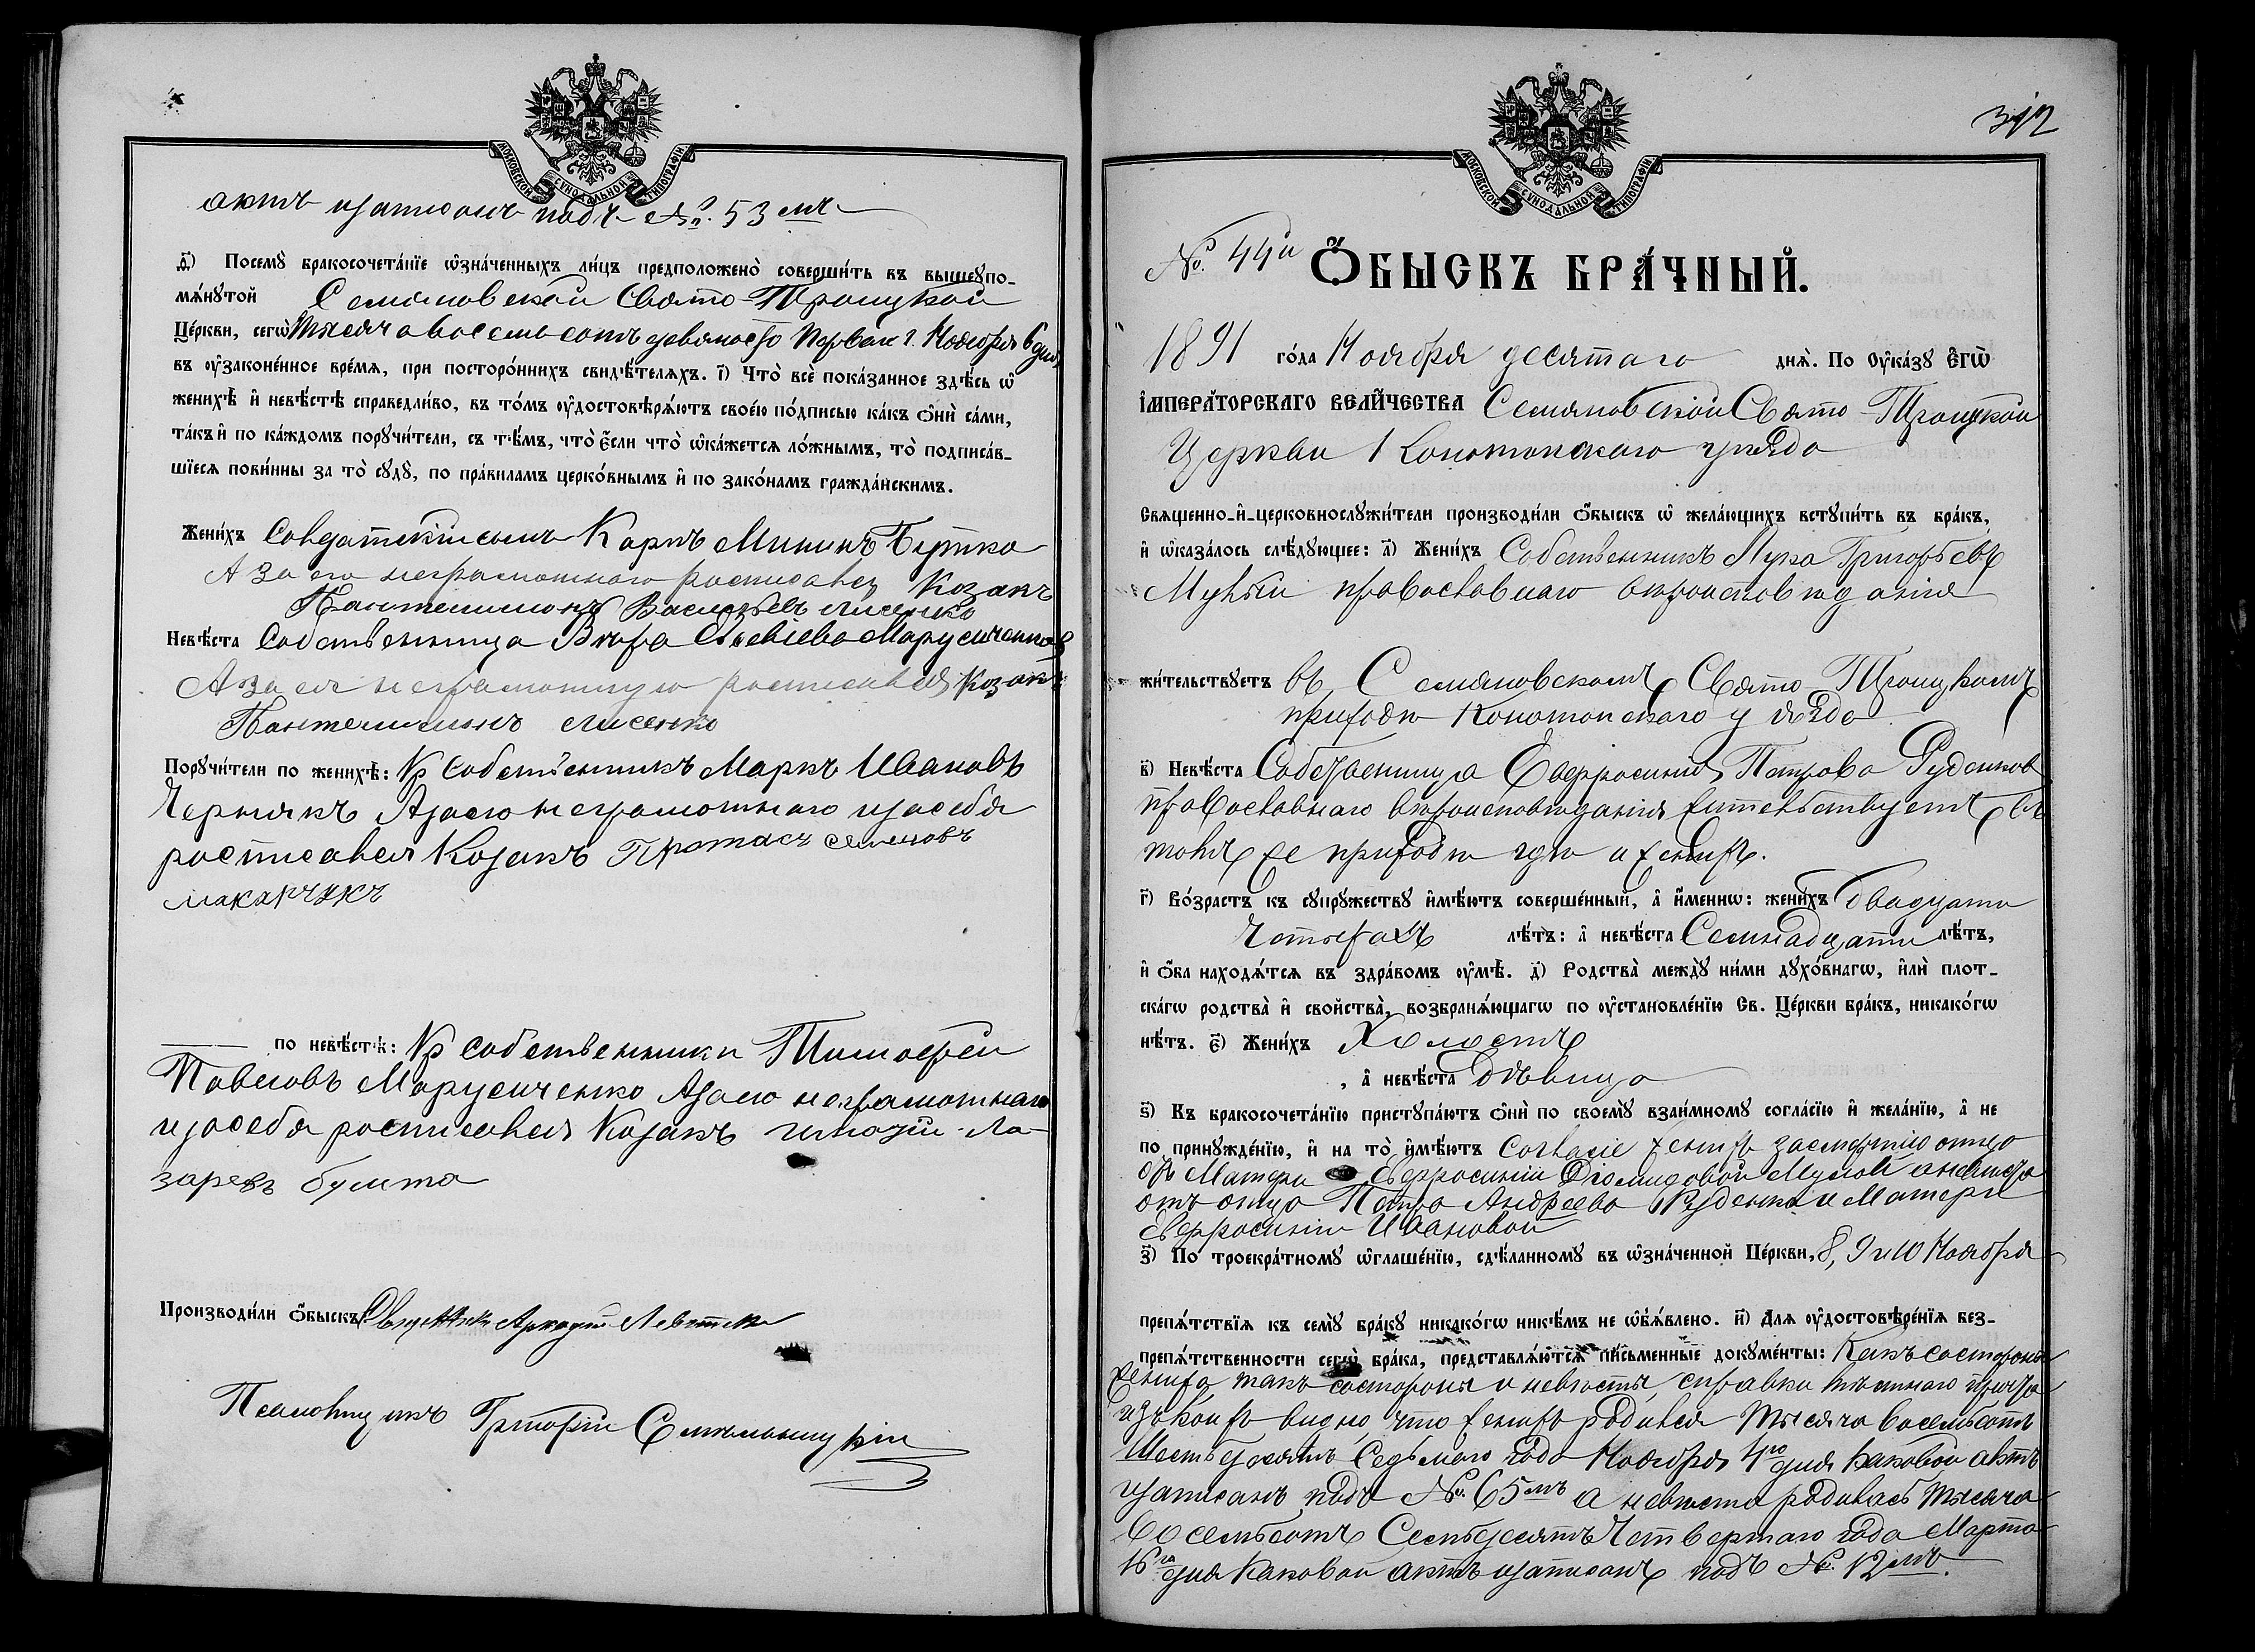 МОСКОВСКОЙ СѴНОДАЛЬНОЙ ТИПОГРАФІИ
актъ записанъ подъ №. 53 мъ
д҃і) Посемꙋ бракосочета́нїе ѡ҆зна́ченныхъ ли́цъ предположено̀ соверши́ть въ вышеꙋпо-
мѧ́нꙋтой Семяновской Свято-Троицкой
Це́ркви, сегѡ̀ Тысяча восемь сотъ девяносто перваго г. Ноября 6 дня
въ ᲂу҆зако́ненное вре́мѧ, при посторо́ннихъ свидѣ́телѧхъ. і҃) Что̀ всѐ пока́занное здѣ́сь ѡ҆
женихѣ̀ и҆ невѣ́стѣ справедли́во, въ то́мъ ᲂу҆достовѣрѧ́ютъ свое́ю по́дписью ка́къ ѻ҆нѝ са́ми,
та́къ и҆ по ка́ждомъ порꙋчи́тели, съ тѣ́мъ, что̀ є҆́сли что̀ ѡ҆ка́жетсѧ ло́жнымъ, то̀ подписа́в-
шїесѧ пови́нны за то̀ сꙋдꙋ̀, по пра́виламъ церко́внымъ и҆ по зако́намъ гражда́нскимъ.
Жени́хъ Солдатскій сынъ Карпъ Мининъ
А за его неграмотного росписался Козакъ
Пантелимонъ Васильевъ Лисенко
Невѣ́ста Собственница Вѣра Марусиченкова
А за ея неграмотную росписался Козакъ
Пантелимонъ Лисенко
Порꙋчи́тели по женихѣ̀: Кр собственникъ Маркъ Ивановъ
Чернякъ А за его неграмотного и за себя
росписался Козакъ Протасъ Семеновъ
макарчукъ
по невѣ́стѣ: Кр собственники Тимофей
Павловъ Марусиченко А за его неграмотнаго
и за себя росписался Козакъ Ла-
заревъ
Производи́ли ѻ҆́быскъ: Священникъ Аркадій
Псаломщикъ Григорій
312
МОСКОВСКОЙ СѴНОДАЛЬНОЙ ТИПОГРАФІИ
№. 44й Ѻ҆́БЫСКЪ БРА́ЧНЫЙ.
1891 го́да Ноября десятаго днѧ̀. По Оу҆ка́зꙋ Є҆гѡ̀
І҆МПЕРА́ТОРСКАГО ВЕЛИ́ЧЕСТВА Семяновской Свято-Троицкой
Церкви Конотопскаго уѣзда
Свѧщенно-и҆-церковнослꙋжи́тели производи́ли ѻ҆́быскъ ѡ҆ жела́ющихъ встꙋпи́ть въ бра́къ,
и҆ ѡ҆каза́лось слѣ́дꙋющее: а҃) Жени́хъ Собственникъ Лука Григорьевъ
православнаго вѣроисповѣданія
жи́тельствꙋетъ въ Семяновскомъ Свято-Троицкомъ
приходѣ Конотопскаго уѣзда
в҃) Невѣ́ста Собственница Евфросинія Петрова Руденкова
православнаго вѣроисповѣданія жительствуетъ въ
томъ же приходѣ гдѣ и женихъ.
г҃) Во́зрастъ къ сꙋпрꙋ́жествꙋ и҆мѣ́ютъ соверше́нный, а҆ и҆́менно: жени́хъ двадцати
четырехъ лѣ́тъ: а҆ невѣ́ста Семнадцати лѣ́тъ,
и҆ ѻ҆́ба нахо́дѧтсѧ въ здра́вомъ ᲂу҆мѣ̀. д҃) Родства̀ междꙋ̀ ни́ми дꙋхо́внагѡ, и҆лѝ плот-
ска́гѡ родства̀ и҆ свойства̀, возбранѧ́ющагѡ по ᲂу҆становле́нїю Св. Це́ркви бра́къ, никако́гѡ
нѣ́тъ. є҃) Жени́хъ Холостъ
, а҆ невѣ́ста Дѣвица
ѕ҃) Къ бракосочета́нїю пристꙋпа́ютъ ѻ҆нѝ по своемꙋ̀ взаи́мномꙋ согла́сїю и҆ жела́нїю, а҆ не
по принꙋжде́нїю, и҆ на то̀ и҆мѣ́ютъ согласіе женихъ за смертію отца
отъ Матери Евфросиніи Діомидовой а невѣста
отъ отца Петра Андреева Руденка и Матери
Евфросиніи Ивановой
з҃) По троекра́тномꙋ ѡ҆глаше́нїю, сдѣ́ланномꙋ въ ѡ҆зна́ченной Це́ркви, 8, 9 и 10 Ноября
препѧ́тствїѧ къ семꙋ̀ бра́кꙋ никако́гѡ никѣ́мъ не ѡ҆б̾ѧ́влено. и҃) Длѧ ᲂу҆достовѣре́нїѧ без-
препѧ́тственности сегѡ̀ бра́ка, представлѧ́ютсѧ пи́сьменные докꙋме́нты: Какъ со стороны
жениха такъ со стороны и невѣсты справки причта
изъ коихъ видно, что женихъ родился тысяча восемьсотъ
Шестьдесятъ Седьмаго года Ноября 4го дня каковой актъ
записанъ подъ №. 65 мъ а невѣста родилась тысяча
восемьсотъ Семьдесятъ Четвертаго года Марта
16го дня каковой актъ записанъ подъ №. 12 мъ.